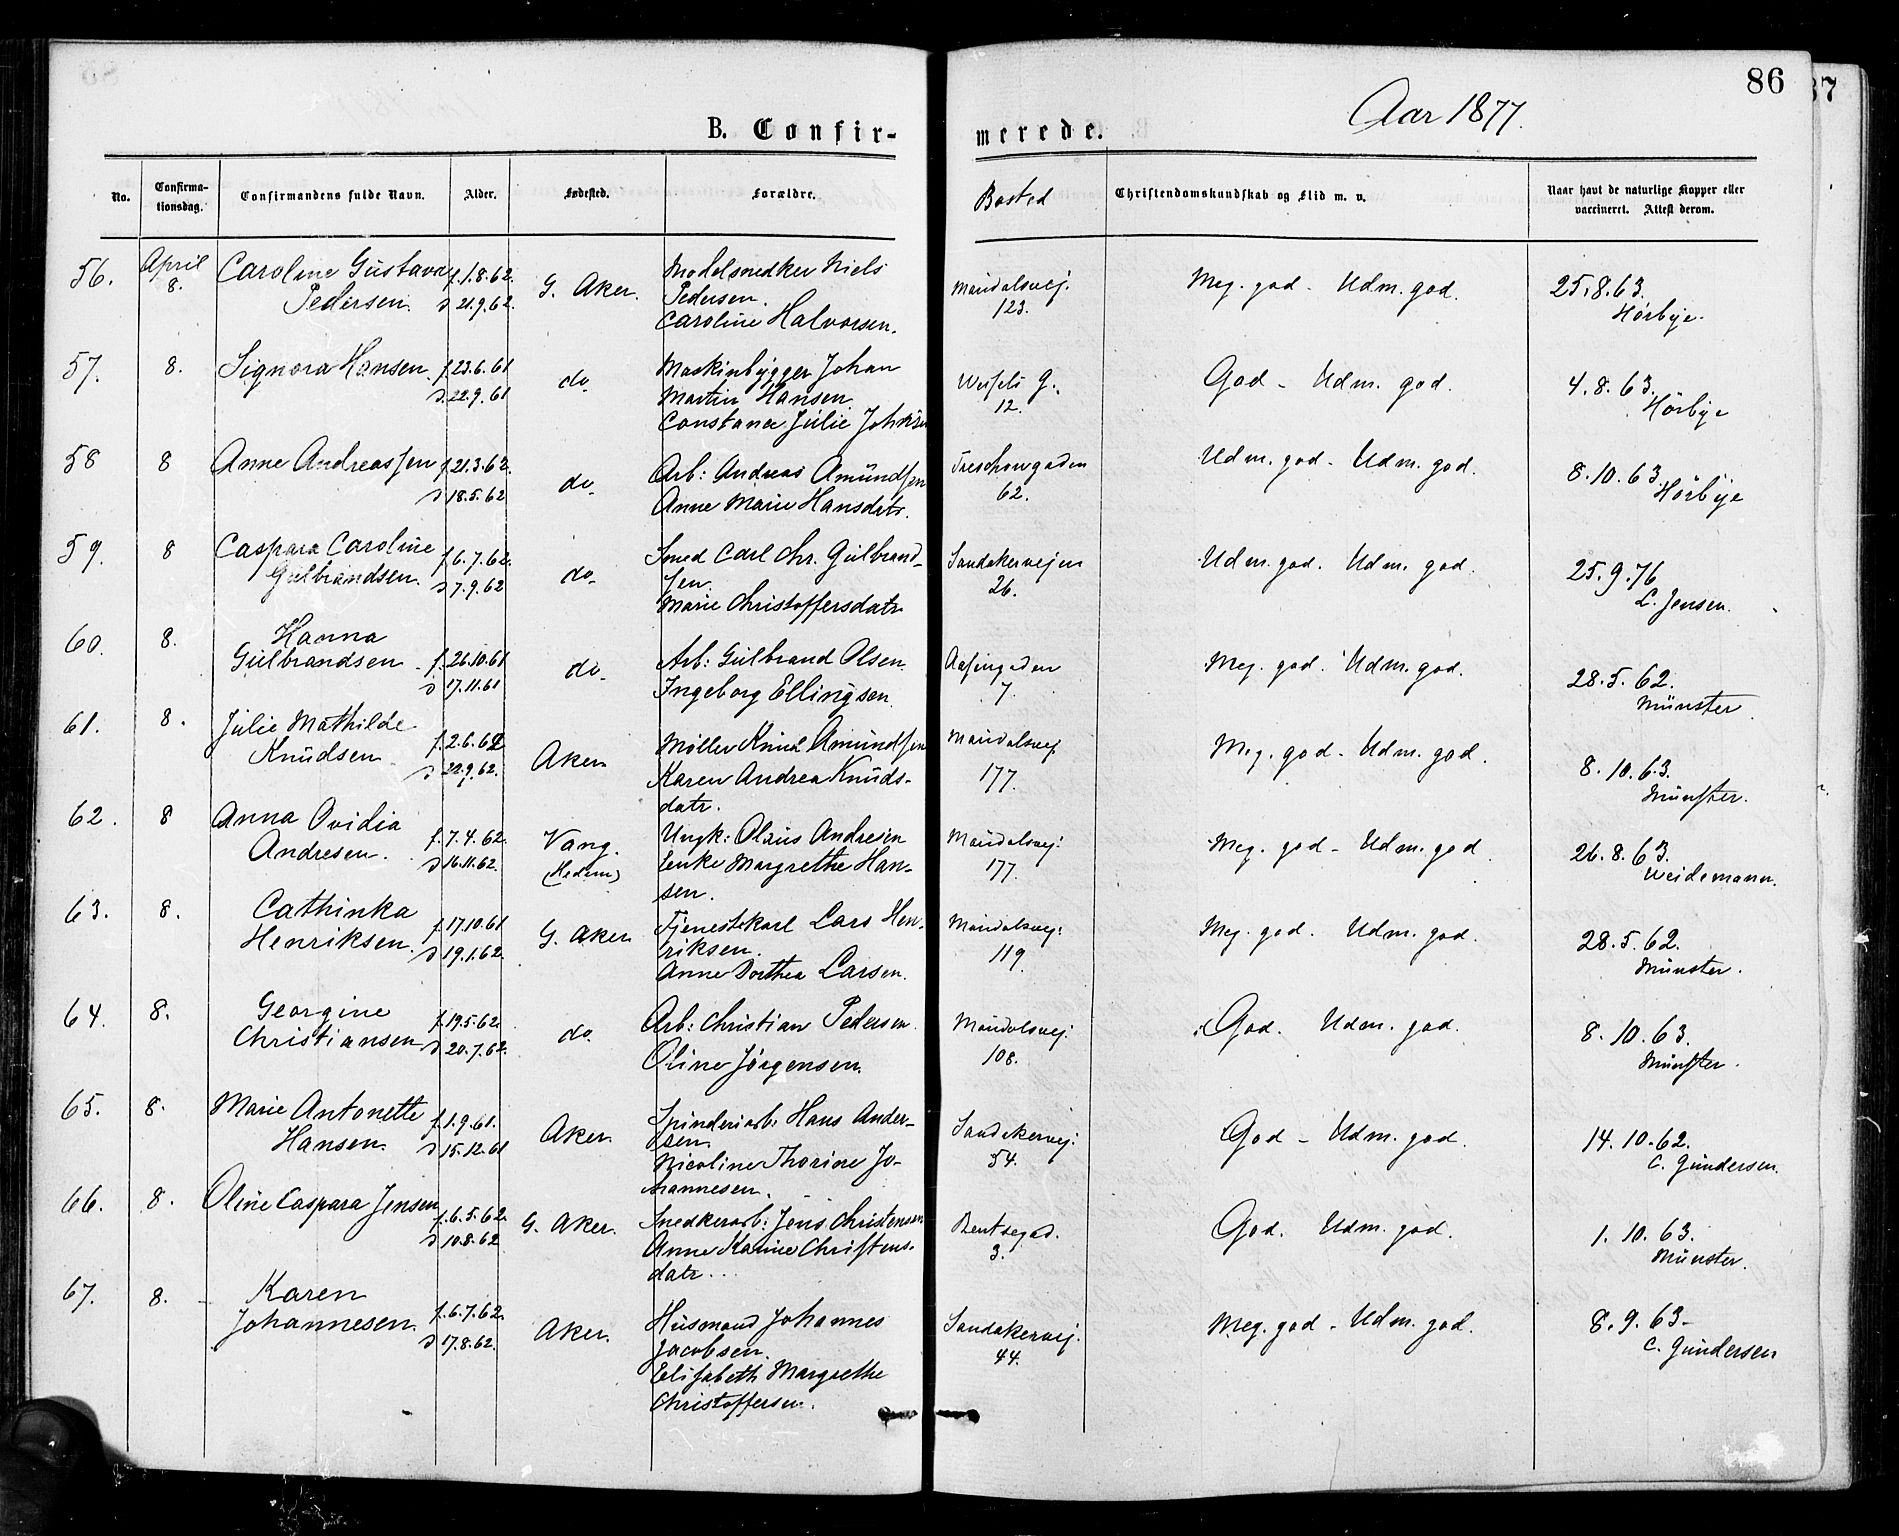 86
87
Aar 1877.
B. Confir-
merede.
No.
Confirma-
tionsdag.
Confirmandens fulde Navn.
Alder.
Fødested.
Forældre.
Bosted
Christendomskundskab og Flid m. v.
Naar havt de naturlige Kopper eller
vaccineret. Attest derom.
56.
April
8.
Caroline Gustava
Pedersen.
f. 1.8.62.
d 21.9.62.
G. Aker.
Modelsnedker Niels
Pedersen.
Caroline Halvorsen.
Maridalsvej.
123.
Meg. god - Udm. god.
25.8.63.
Hörbye.
57.
8.
Signora Hansen.
f. 23.6.61
d. 22.9.61
do.
Maskinbygger Johan
Martin Hansen
Constance Julie Johnsen
G.
12.
God - Udm. god.
4.8.63.
Hörbye
58
8
Anne Andreassen
f. 21.3.62.
d 18.5.62
do.
Arb: Andreas Amundsen
Anne Marie Hansdatr.
Treschowgaden
62.
Udm. god - Udm. god.
8.10.63.
Hörbye
59.
8
Caspara Caroline
Gulbrandsen.
f 6.7.62.
d 7.9.62
do.
Smed Carl Chr. Gulbrand-
sen.
Marie Christoffersdatr
Sandakervejen
26.
Udm. god. Udm. god.
25.9.76
L. Jensen.
60.
8.
Hanna
Gulbrandsen.
f. 26.10.61
d 17.11.61
do.
Arb: Gulbrand Olsen.
Ingeborg Ellingsen.
7.
Meg. god. Udm. god.
28.5.62.
Münster.
61.
8.
Julie Mathilde
Knudsen.
f. 2.6.62
d 22.9.62.
Aker.
Møller Knud Amundsen
Karen Andrea Knuds-
datr.
Maridalsvej
177.
Meg. god - Udm. god.
8.10.63.
Münster.
62.
8
Anna Ovidia
Andresen.
f. 7.4.62.
d 16.11.62.
Vang.
(Hedem)
Ungk: Olaus Andresen
Enke Margrethe Han-
sen.
Maridalsvej:
177.
Meg. god - Udm. god.
26.8.63.
Weidemann.
63.
8.
Cathinka
Henriksen.
f. 17.10.61
d 19.1.62.
G. Aker.
Tjenestekarl Lars Hen-
riksen.
Anne Dorthea Larsen.
Maridalsvej:
119.
Meg. god. Udm. god.
28.5.62.
Münster.
64.
8.
Georgine
Christiansen
f. 19.5.62.
d 20.7.62.
do.
Arb: Christian Pedersen.
Oline Jørgensen.
Maridalsvej:
108.
God. Udm. god.
8.10.63.
Münster.
65.
8.
Marie Antonette
Hansen.
f. 1.9.61.
d 15.12.61
Aker.
Spinderiarb: Hans Ander-
sen.
Nicoline Thorine Jo-
hannesen.
Sandakervej:
54.
God - Udm. god.
14.10.62.
C. Gundersen.
66.
8.
Oline Caspara Jensen
f. 6.5.62.
d 10.8.62
G. Aker.
Snedkerarb: Jens Christensen
Anne Karine Christens-
datr...
Bentsegad.
3.
God. Udm. god.
1.10.63.
Münster.
67.
8.
Karen
Johannesen.
f. 6.7.62.
d 17.8.62.
Aker.
Husmand Johannes
Jacobsen.
Elisabeth Margrethe
Christoffersen.
Sandakervej.
44.
Meg. god - Udm. god.
8.9.63-
C. Gundersen